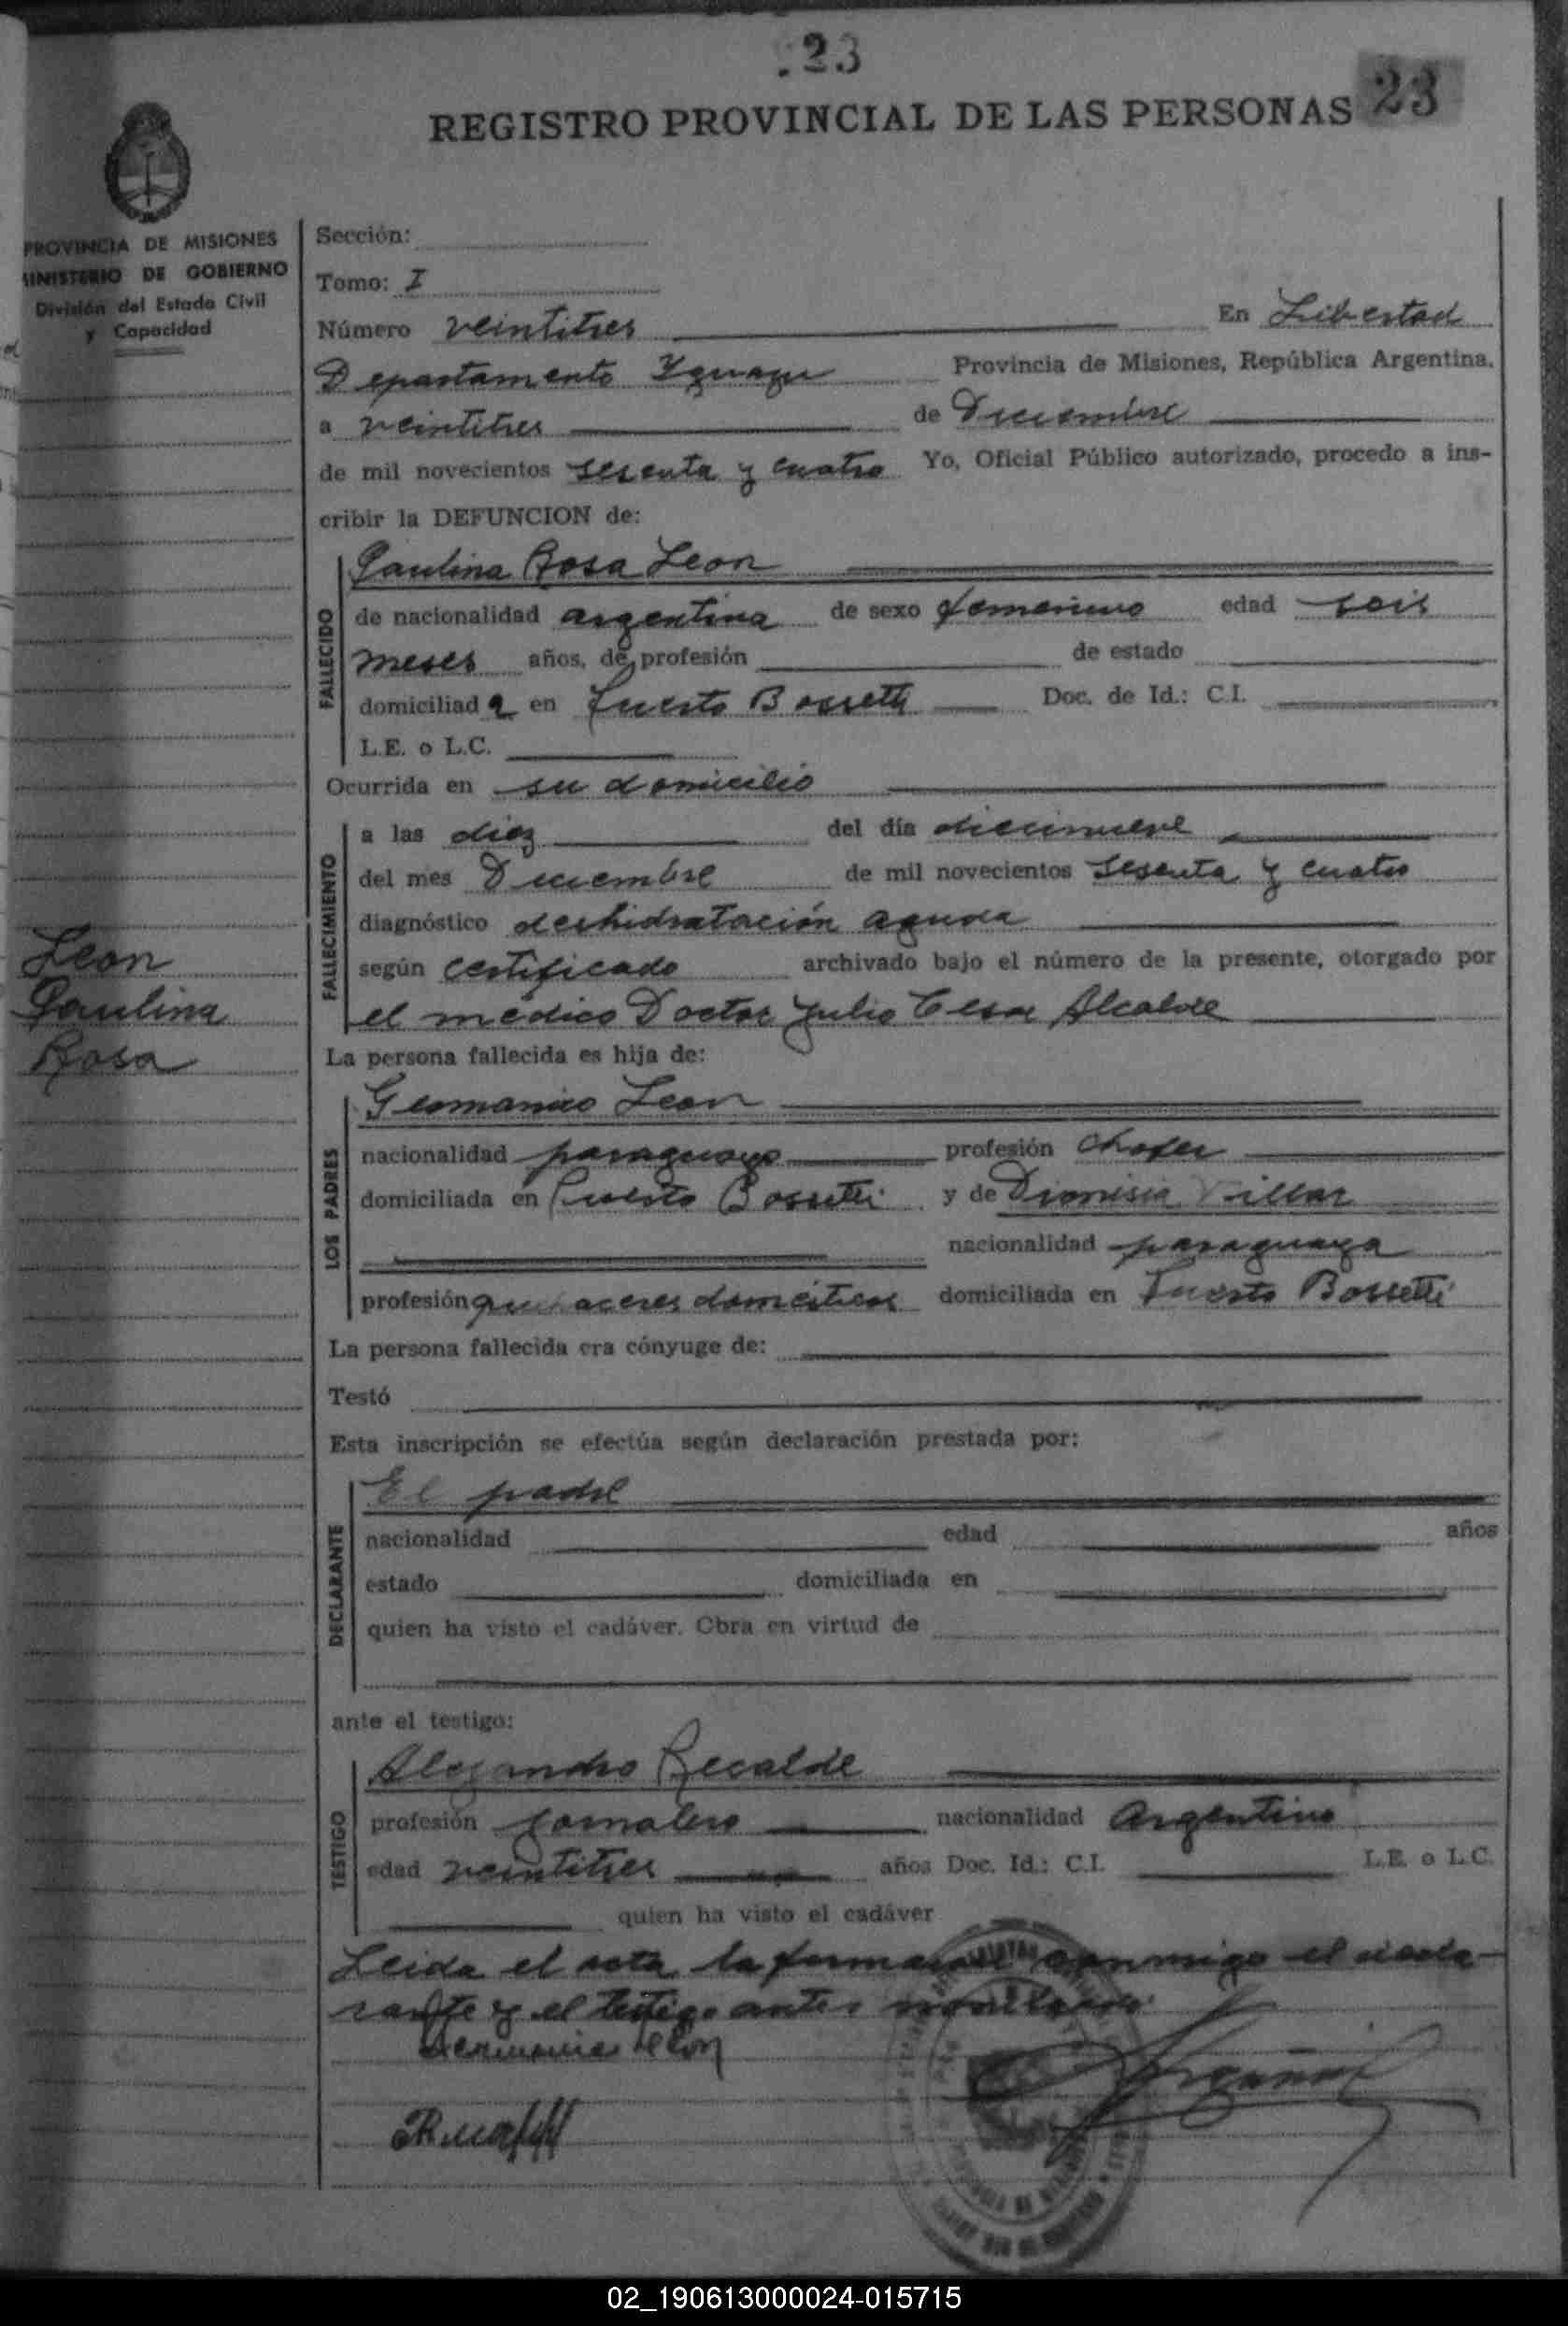 23
REGISTRO PROVINCIAL DE LAS PERSONAS 23
PROVINCIA DE MISIONES
MINISTERIO DE GOBIERNO
División del Estado Civil
y Capacidad
Sección:
Tomo: I
Número veintitres En Libertad
Departamento Iguazu Provincia de Misiones, República Argentina,
a veintitres de Diciembre
de mil novecientos sesenta y cuatro Yo, Oficial Público autorizado, procedo a ins-
cribir la DEFUNCION de:
Paulina Rosa Leon
FALLECIDO
de nacionalidad argentina de sexo femenino edad seis
meses años, de profesión de estado
domiciliada en Puerto Bossetti Doc. de Id.: C.I.
L.E. o L.C.
Ocurrida en su domicilio
FALLECIMIENTO
a las diez del día diecinueve
del mes Diciembre de mil novecientos sesenta y cuatro
diagnóstico deshidratación aguda
según certificado archivado bajo el número de la presente, otorgado por
el médico Doctor Julio Cesar Alcalde
Leon
Paulina
Rosa
La persona fallecida es hija de:
Germanico Leon
LOS PADRES
nacionalidad paraguayo profesión chofer
domiciliada en Puerto Bossetti y de Dionisia Villar
nacionalidad paraguaya
profesión quehaceres domésticos domiciliada en Puerto Bossetti
La persona fallecida era cónyuge de:
Testó
Esta inscripción se efectúa según declaración prestada por:
El padre
DECLARANTE
nacionalidad edad años
estado domiciliada en
quien ha visto el cadáver. Obra en virtud de
ante el testigo:
Alejandro Recalde
TESTIGO
profesión jornalero nacionalidad Argentino
edad veintitres años Doc. Id.: C.I. L.E. o L.C.
quien ha visto el cadáver
Leida el acta la firmaron conmigo el decla-
rante y el testigo antes nombrado
02_190613000024-015715